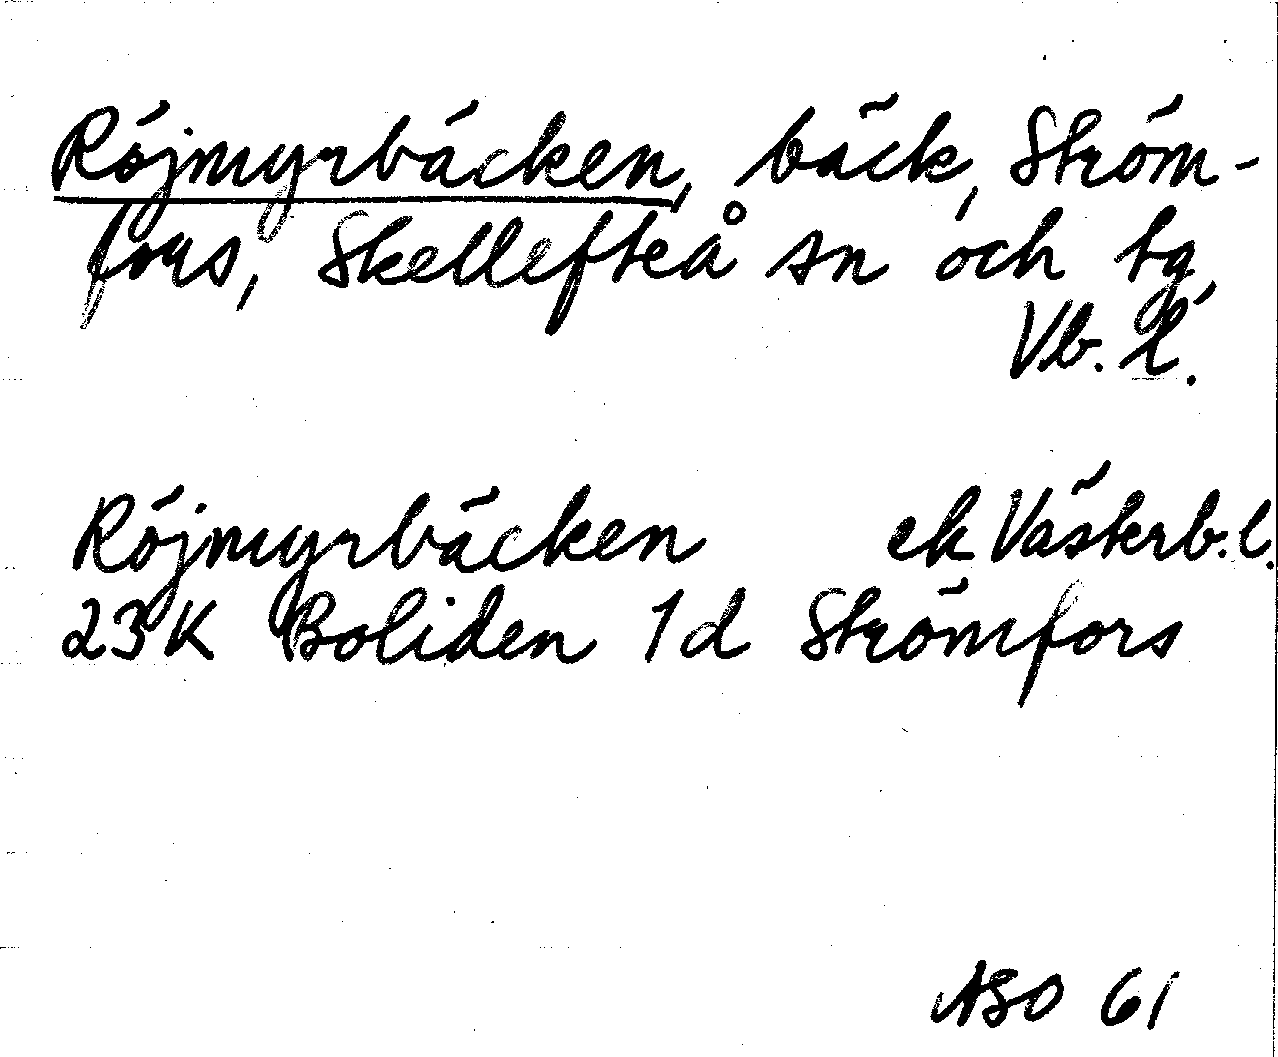 Röjmyrbäcken, bäck, Ström-
fors, Skellefteå sn och tg,
Vb. l.
Röjmyrbäcken ek Västerb. l.
23K Boliden 1d Strömfors
ASO 61